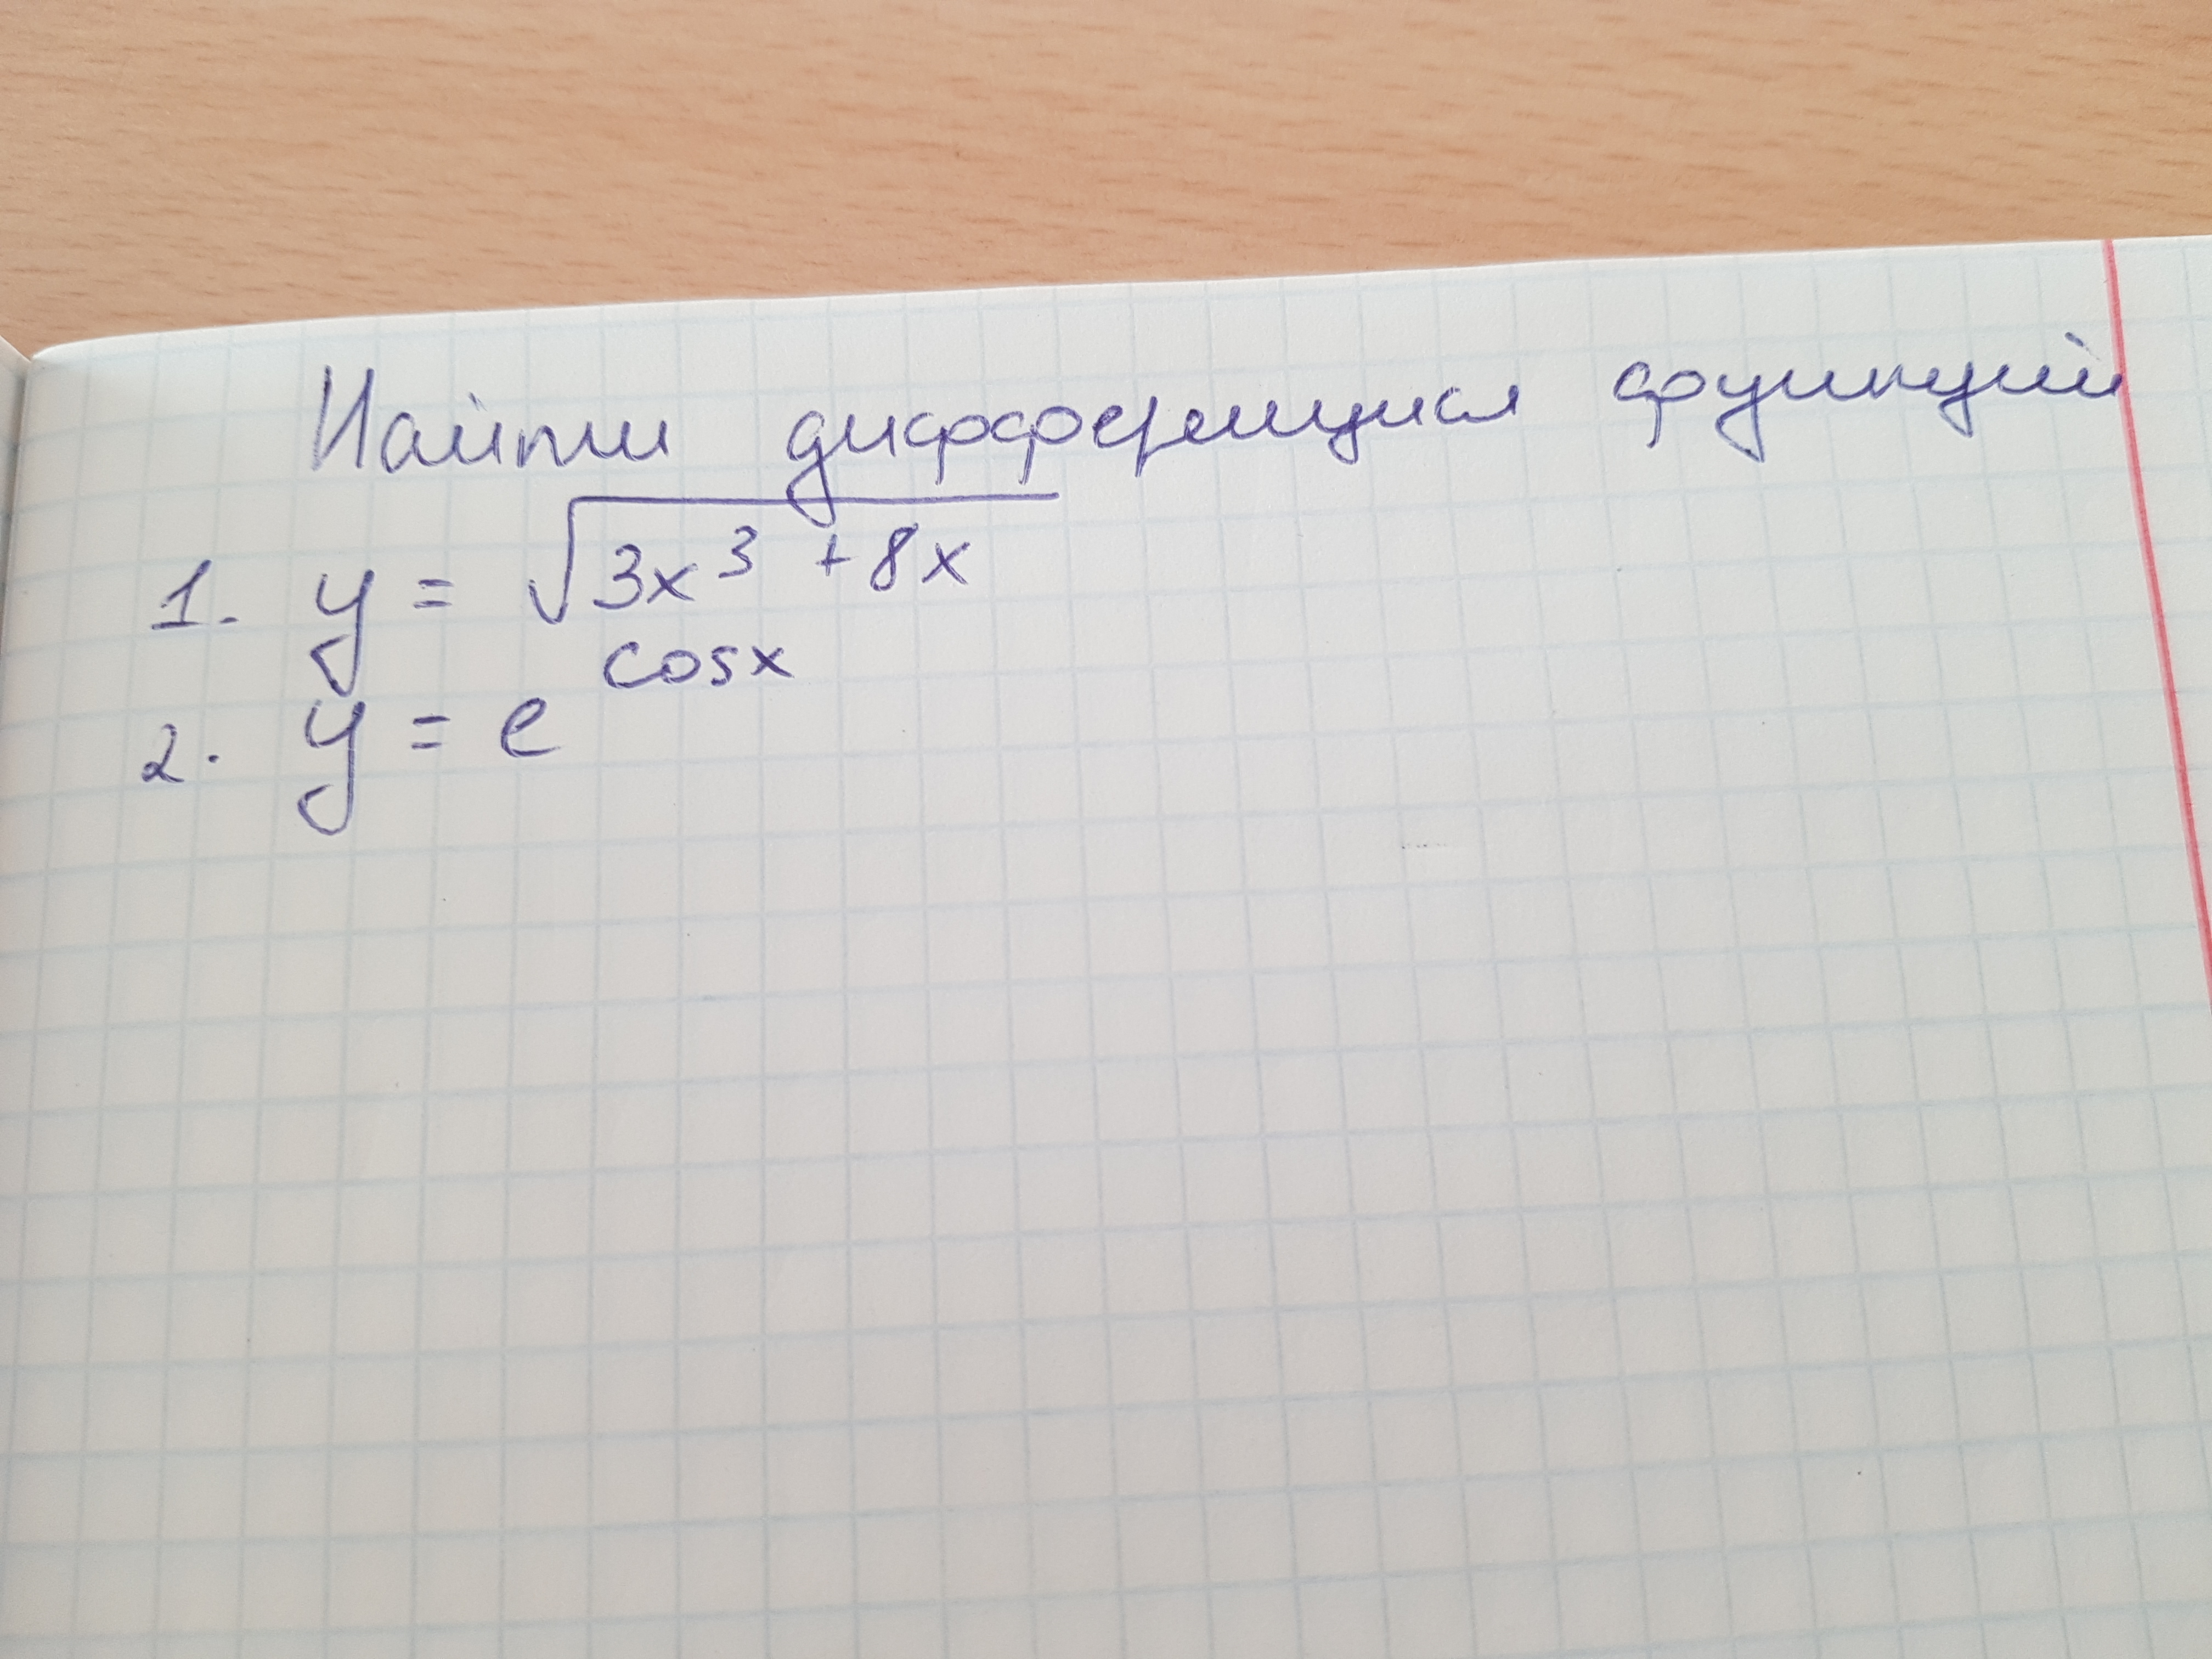 Найти дифференциал функций
1. y = √3x³ + 8x
2. y = e^cosx